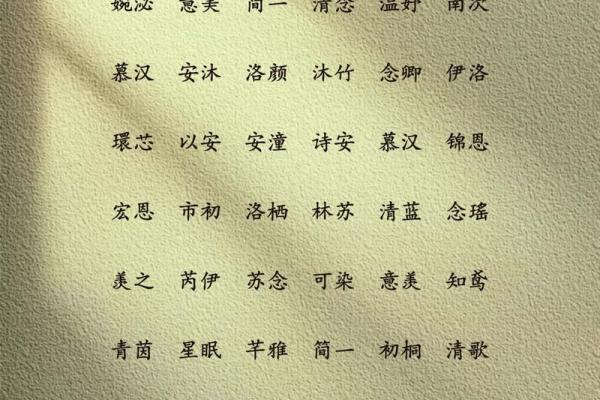 婉泌 意美 简一 清念 温妤 南次
慕汉 安沐 洛颜 沐竹 念卿 伊洛
環芯 以安 安潼 诗安 慕汉 锦恩
宏恩 市初 洛栖 林苏 清蓝 念瑤
羙之 芮伊 苏念 可染 意羙 知鸢
青茵 星眠 芊雅 简一 初桐 清歌